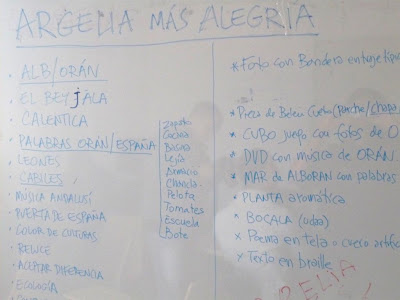 ARGELIA MÁS ALEGRIA
· ALB/ORÁN
· EL BEY JALA
· CALENTICA
· PALABRAS ORÁN/ESPAÑA
· LEONES
· CABILES
· MÚSICA ANDALUSÍ
· PUERTA DE ESPAÑA
· COLOR DE CULTURAS
· RELICE
· ACEPTAR DIFERENCIA
· ECOLOGÍA
Zapato
Cocina
Basura
Lejía
Armario
Chancla
Pelota
Tomates
Escuela
Bote
* Foto con Bandera en tuje típic
* Pieza de Belen Cuello (parche/chapa
* CUBO juego con fotos de O
* DVD con música de ORÁN
* MAR de ALBORAN con palabras
* PLANTA aromática
* BOCALA
* Poema en tela o cuero artific
* Texto en braille